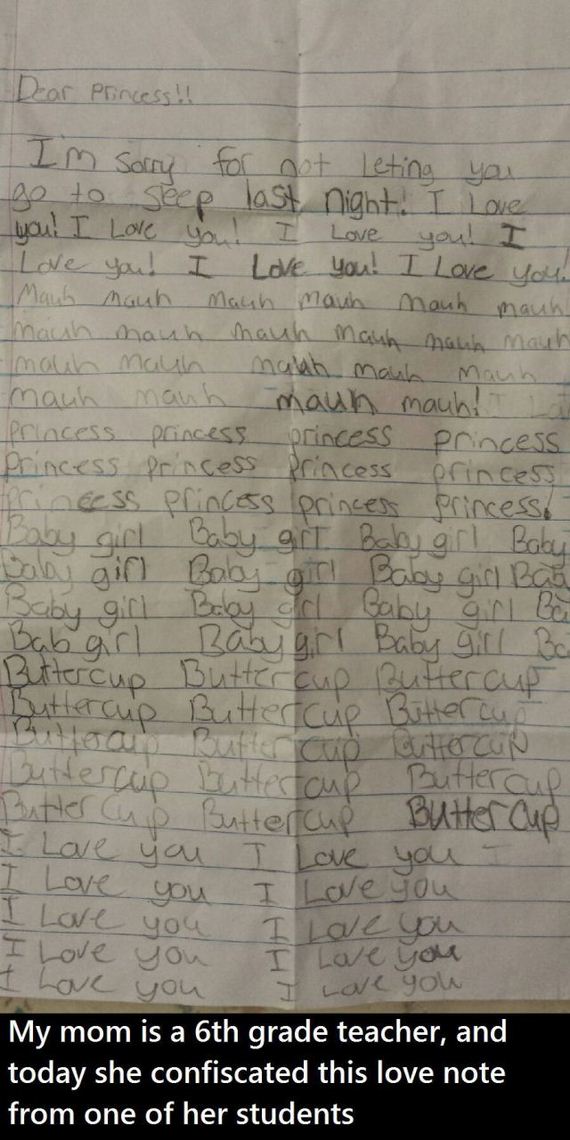 Dear Princess!!
I'm sorry for not leting you
go to sleep last night! I Love
you! I Love you! I Love you! I
Love you! I Love you! I Love you!
Mauh mauh mauh mauh mauh mauh
mauh mauh mauh mauh mauh mauh
mauh mauh mauh mauh mauh
mauh mauh mauh mauh!
princess princess princess princess
Princess princess princess princess
princess princess princess princess!
Baby girl Baby girl Baby girl Baby
Baby girl Baby girl Baby girl Bab
Baby girl Baby girl Baby girl Ba
Bab girl Baby girl Baby girl Ba
Buttercup Buttercup Buttercup
Buttercup Buttercup Buttercup
Buttercup Buttercup Buttercup
Buttercup Buttercup Buttercup
Buttercup Buttercup Buttercup
I Love you I Love you
I Love you I Love you
I Love you I Love you
I Love you I Love you
I Love you I Love you
My mom is a 6th grade teacher, and
today she confiscated this love note
from one of her students